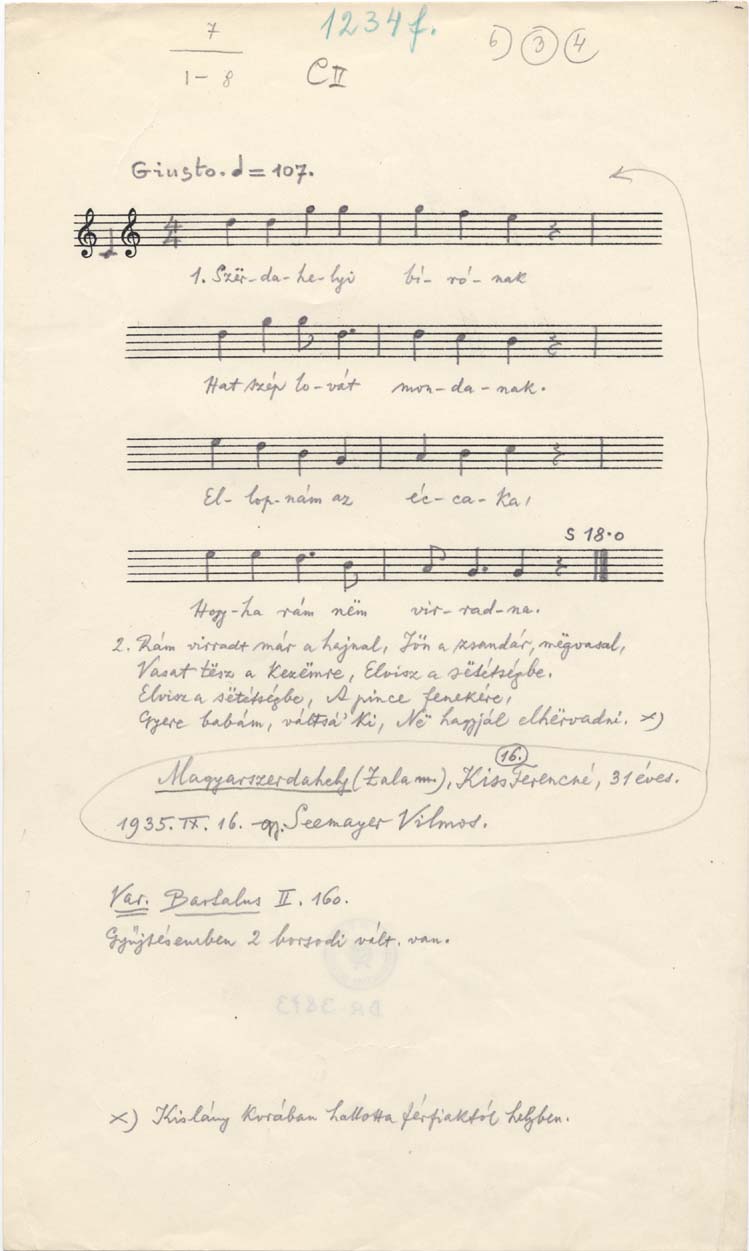 7
1 - 8
1234f.
CII
5) 3 4
Giusto. = 107.
4
4
1. Szër-da-he-lyi bí-ró-nak
Hat szép lo-vát mon-da-nak.
El-lop-nám az éc-ca-ka,
S 18·0
Hogy-ha rám nëm vir-rad-na.
2. Rám virradt már a hajnal, Jön a zsandár, mëgvasal,
Vasat tësz a kezëmre, Elvisz a sëtétségbe.
Elvisz a sëtétségbe, A pince fenekére,
Gyere babám, váltsá' ki, Në hagyjál elhërvadni. x)
16.
Magyarszerdahely (Zala m.), Kiss Ferencné, 31 éves.
1935. IX. 16. gy. Seemayer Vilmos.
Var. Bartalus II. 160.
Gyűjtésemben 2 borsodi vált. van.
x) Kislány korában hallotta férfiaktól helyben.